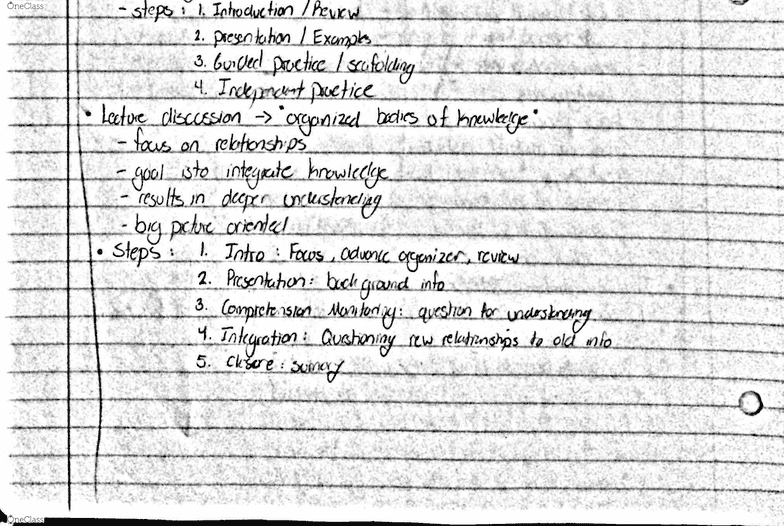 OneClass
- steps : 1. Introduction / Review
2. presentation / Examples
3. Guided practice / scafolding
4. Independent practice
• Lecture discussion → "organized bodies of knowledge"
- focus on relationships
- goal is to integrate knowledge
- results in deeper understanding
- big picture oriented
• Steps : 1. Intro : Focus, advance organizer, review
2. Presentation : background info
3. Comprehension Monitoring : question for understanding
4. Integration : Questioning new relationships to old info
5. Closure : sumary
OneClass